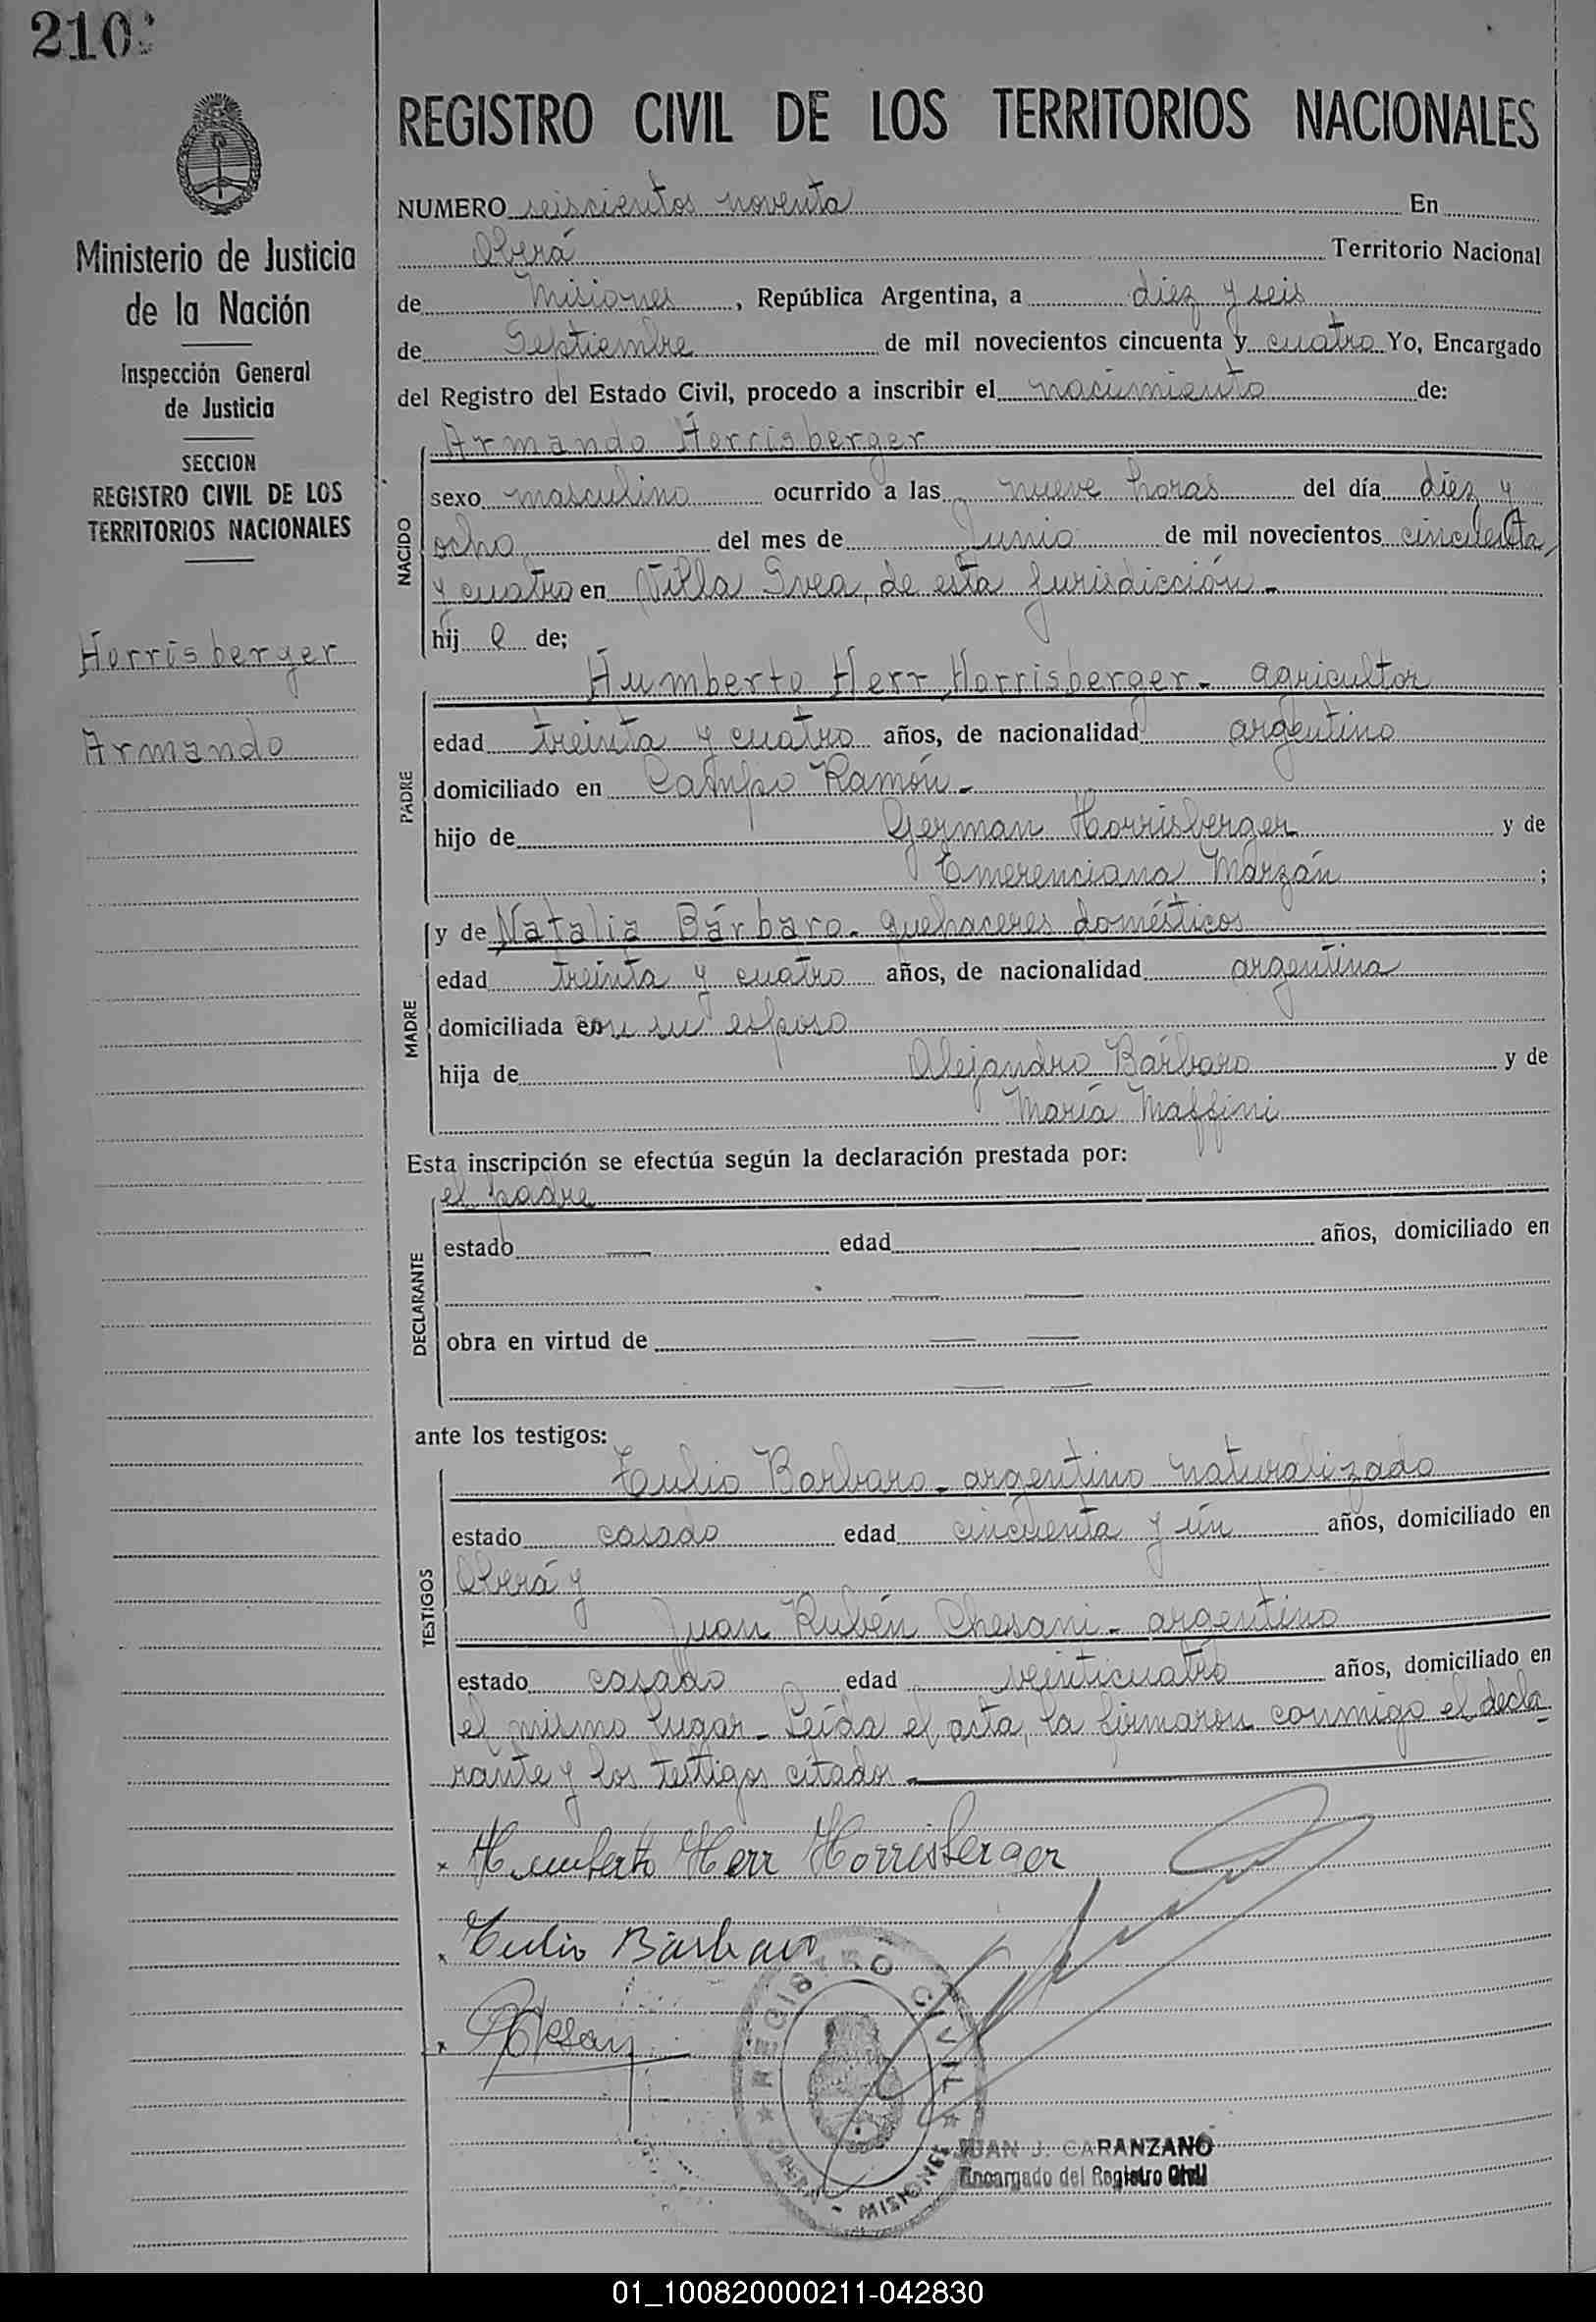 210
REGISTRO CIVIL DE LOS TERRITORIOS NACIONALES
Ministerio de Justicia
de la Nación
Inspección General
de Justicia
SECCION
REGISTRO CIVIL DE LOS
TERRITORIOS NACIONALES
Horrisberger
Armando
NUMERO seiscientos noventa En
Oberá Territorio Nacional
de Misiones, República Argentina, a diez y seis
de Septiembre de mil novecientos cincuenta y cuatro Yo, Encargado
del Registro del Estado Civil, procedo a inscribir el nacimiento de:
NACIDO
Armando Horrisberger
sexo masculino ocurrido a las nueve horas del día diez y
ocho del mes de Junio de mil novecientos cincuenta
y cuatro en Villa Svea, de esta jurisdicción.-
hij o de;
PADRE
Humberto Herr Horrisberger.- agricultor
edad treinta y cuatro años, de nacionalidad argentino
domiciliado en Campo Ramón.-
hijo de German Horrisberger y de
Emerenciana Marzán ;
MADRE
y de Natalia Bárbaro.- quehaceres domésticos
edad treinta y cuatro años, de nacionalidad argentina
domiciliada con su esposo
hija de Alejandro Bárbaro y de
María Maffini
Esta inscripción se efectúa según la declaración prestada por:
DECLARANTE
el padre
estado — edad — años, domiciliado en
— —
obra en virtud de — —
— —
ante los testigos:
TESTIGOS
Tulio Barbaro.- argentino naturalizado
estado casado edad cincuenta y un años, domiciliado en
Oberá y
Juan Rubén Chesani.- argentino
estado casado edad veinticuatro años, domiciliado en
el mismo lugar.- Leída el acta, la firmaron conmigo el decla-
rante y los testigos citados.-
x Humberto Herr Horrisberger
x Tulio Bárbaro
x
REGISTRO CIVIL
OBERA - MISIONES
JUAN J. CARANZANO
Encargado del Registro Civil
01_100820000211-042830